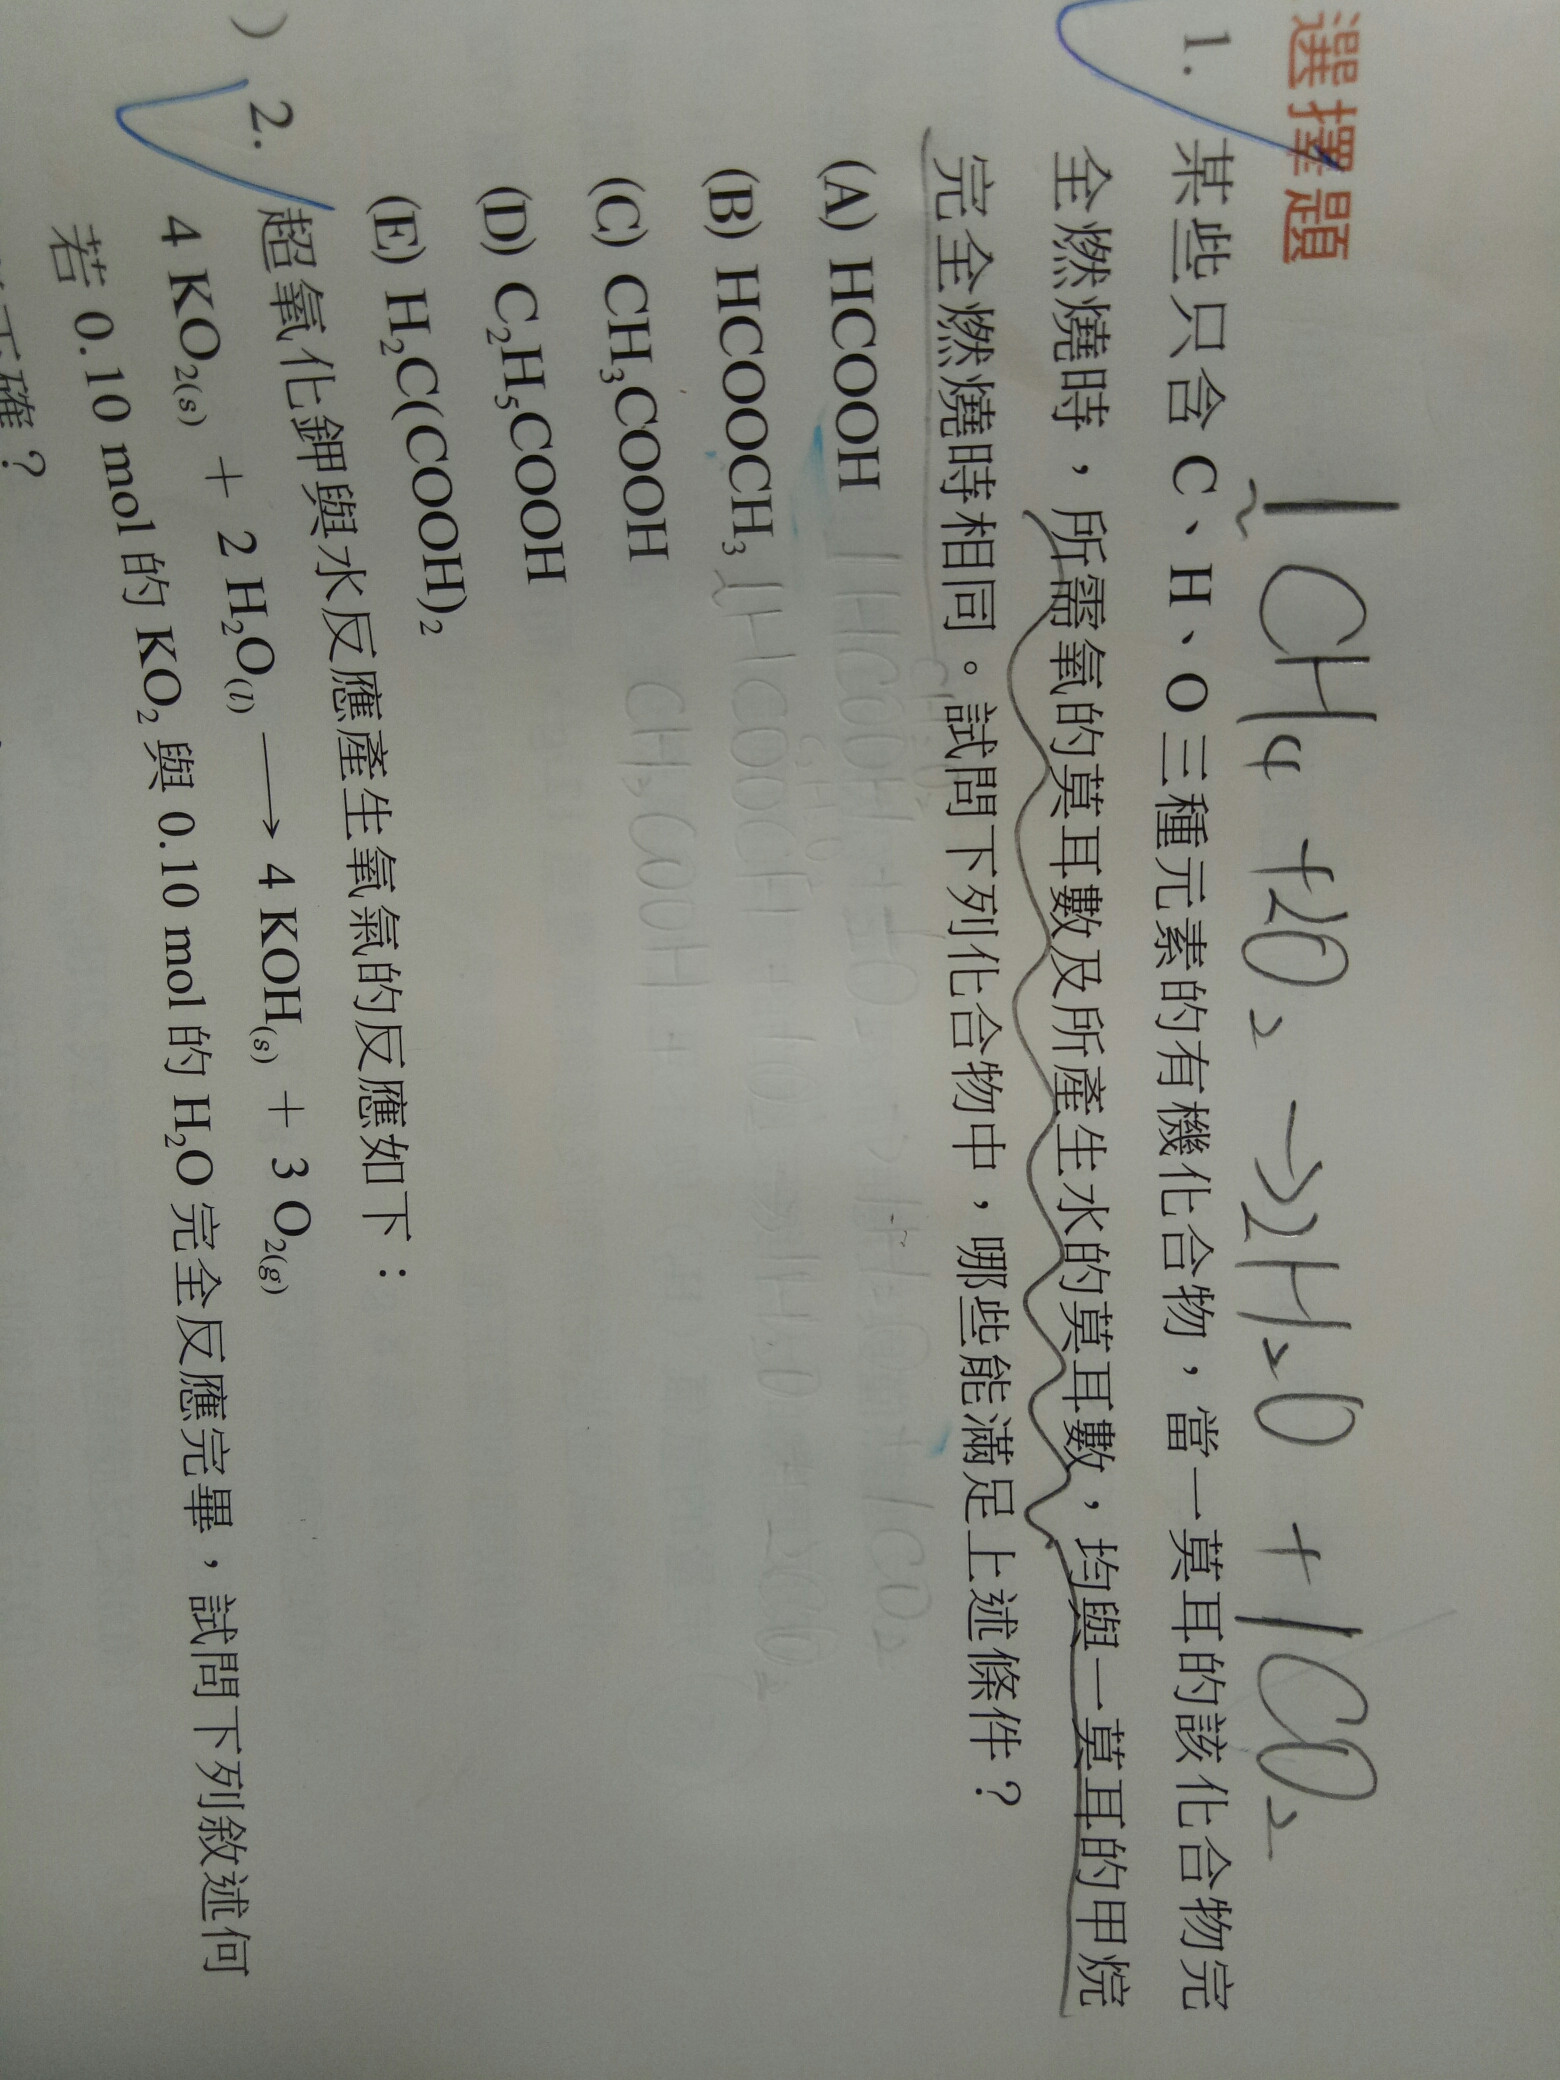 選擇題
1 CH₄ + 2O₂ → 2H₂O + 1CO₂
1. 某些只含 C、H、O 三種元素的有機化合物，當一莫耳的該化合物完
全燃燒時，所需氧的莫耳數及所產生水的莫耳數，均與一莫耳的甲烷
完全燃燒時相同。試問下列化合物中，哪些能滿足上述條件？
(A) HCOOH
(B) HCOOCH₃
(C) CH₃COOH
(D) C₂H₅COOH
(E) H₂C(COOH)₂
) 2. 超氧化鉀與水反應產生氧氣的反應如下：
4 KO₂(s) + 2 H₂O(l) ⟶ 4 KOH(s) + 3 O₂(g)
若 0.10 mol 的 KO₂ 與 0.10 mol 的 H₂O 完全反應完畢，試問下列敘述何
確？